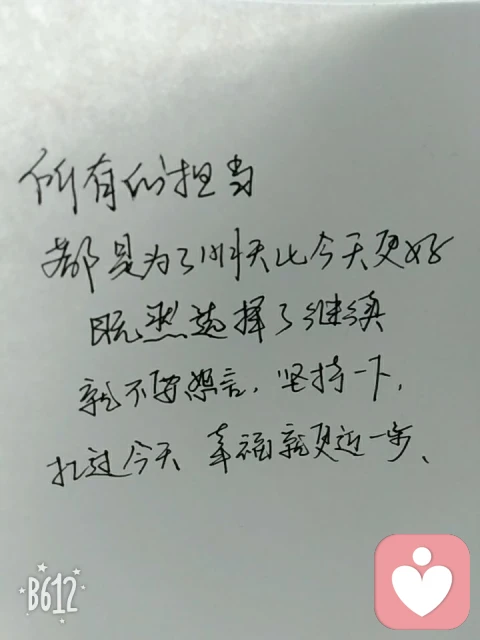 所有的担当
都是为了明天比今天更好
既然选择了继续
就不要怨言，坚持一下，
扛过今天 幸福就更近一步、
B612